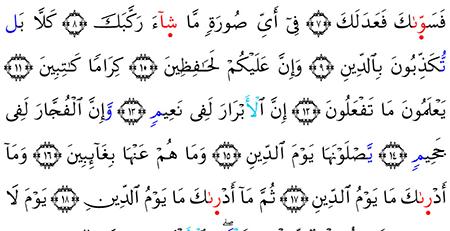 فَسَوّ۪ىٰكَ فَعَدَلَكَ ﴿٧﴾ فِىٓ أَىِّ صُورَةٍ مَّا شَآءَ رَكَّبَكَ ﴿٨﴾ كَلَّا بَل
تُّكَذِّبُونَ بِالدِّينِ ﴿٩﴾ وَإِنَّ عَلَيْكُمْ لَحَـٰفِظِينَ ﴿١٠﴾ كِرَامًا كَـٰتِبِينَ ﴿١١﴾
يَعْلَمُونَ مَا تَفْعَلُونَ ﴿١٢﴾ إِنَّ الْأَبْرَارَ لَفِى نَعِيمٍ ﴿١٣﴾ وَّإِنَّ الْفُجَّارَ لَفِى
جَحِيمٍ ﴿١٤﴾ يَّصْلَوْنَهَا يَوْمَ الدِّينِ ﴿١٥﴾ وَمَا هُمْ عَنْهَا بِغَآئِبِينَ ﴿١٦﴾ وَمَآ
أَدْر۪ىٰكَ مَا يَوْمُ الدِّينِ ﴿١٧﴾ ثُمَّ مَآ أَدْر۪ىٰكَ مَا يَوْمُ الدِّينِ ﴿١٨﴾ يَوْمَ لَا